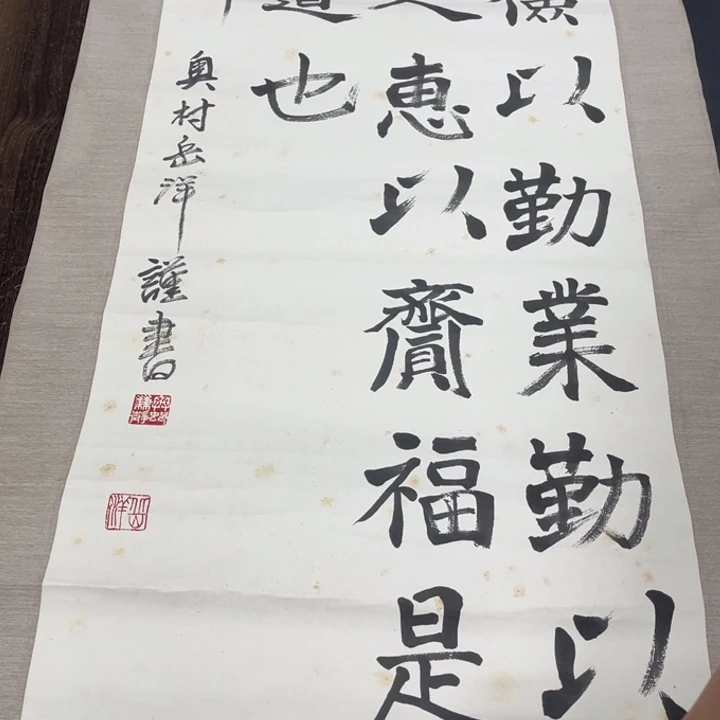 儉以勤業勤以
人惠以齎福是
道也
奥村岳洋謹書
岳洋